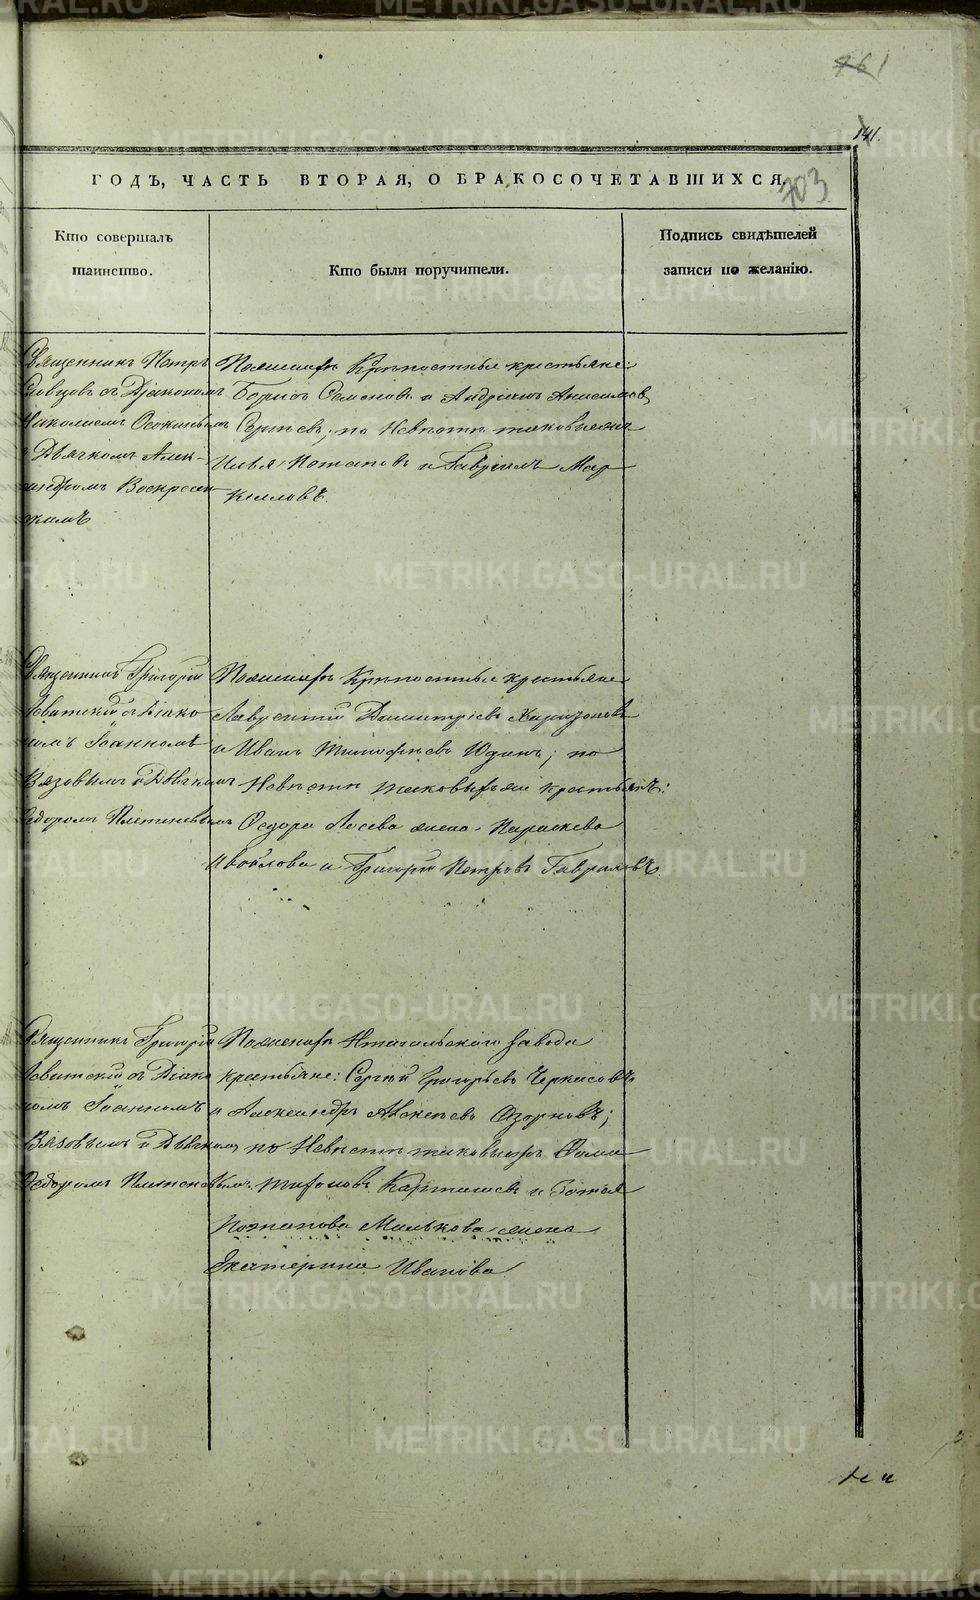 761
141.
ГОДЪ, ЧАСТЬ ВТОРАЯ, О БРАКОСОЧЕТАВШИХСЯ.
703
Кто совершалъ
таинство.
Кто были поручители.
Подпись свидѣтелей
записи по желанію.
Священникъ Петръ
Словцовъ съ Діакономъ
Николаемъ
и Дьячкомъ Алек-
сандромъ Воскресен
скимъ
По женихѣ Крѣпостные крестьяне:
Борисъ Семеновъ и Андріанъ Анисимовъ
по Невѣстѣ таковыежъ
Илья Потаповъ и Гавріилъ Мар
келловъ
Священникъ Григорій
Левитскій съ Діако
номъ Іоанномъ
Вяземымъ и Дьячкомъ
Ѳедоромъ
По женихѣ Крѣпостные крестьяне
Лаврентій Димитріевъ Харитоновъ
и Иванъ Тимофѣевъ Юдинъ; по
Невѣстѣ таковыеже крестьянъ:
Ѳедора Лосева жена Параскева
и Григорій Петровъ Гавриловъ
Священникъ Григорій
Левитскій съ Діако
номъ Іоанномъ
Вяземымъ и Дьячкомъ
Ѳедоромъ
По женихѣ Нтагильскаго завода
крестьяне: Сергѣй Григорьевъ Черкасовъ
и Александръ Алексѣевъ
по Невѣстѣ таковыежъ Ѳома
Тихоновъ Карташевъ и
Потапова Малькова жена
Екатерина Иванова
METRIKI.GASO-URAL.RU